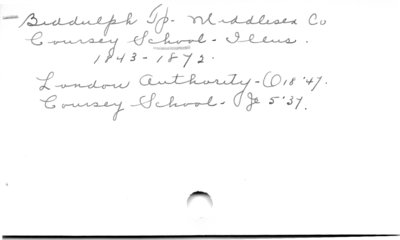 Biddulph Tp. Middlesex Co
Coursey School - Illus.
1843-1872.
London Authority - O 18 '47.
Coursey School - Je 5 '37.